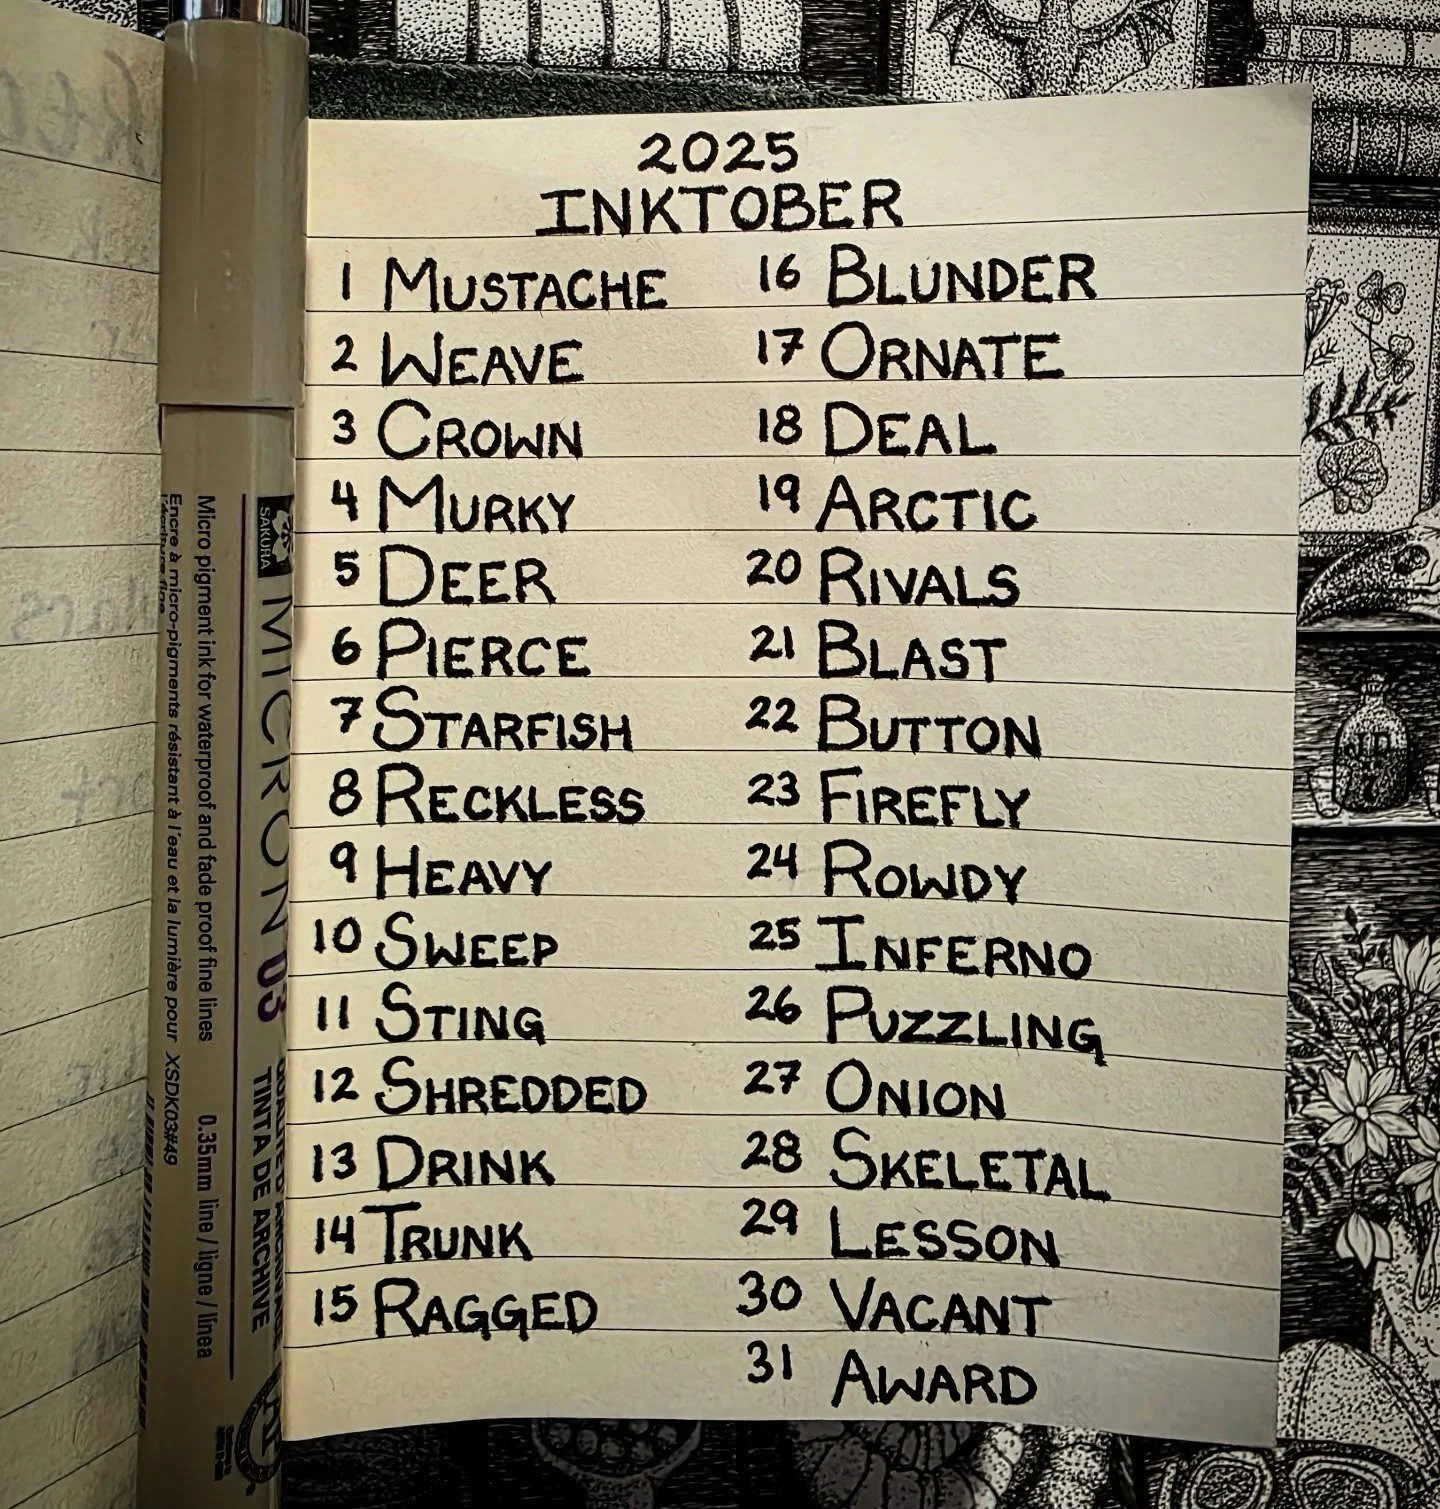 2025
INKTOBER
1 MUSTACHE
2 WEAVE
3 CROWN
4 MURKY
5 DEER
6 PIERCE
7 STARFISH
8 RECKLESS
9 HEAVY
10 SWEEP
11 STING
12 SHREDDED
13 DRINK
14 TRUNK
15 RAGGED
16 BLUNDER
17 ORNATE
18 DEAL
19 ARCTIC
20 RIVALS
21 BLAST
22 BUTTON
23 FIREFLY
24 ROWDY
25 INFERNO
26 PUZZLING
27 ONION
28 SKELETAL
29 LESSON
30 VACANT
31 AWARD
SAKURA
MICRON 03
TINTA DE ARCHIVE
Micro pigment ink for waterproof and fade proof fine lines 0.35mm line / ligne / línea
Encre à micro-pigments résistant à l'eau et la lumière pour XSDK03#49
l'écriture fine